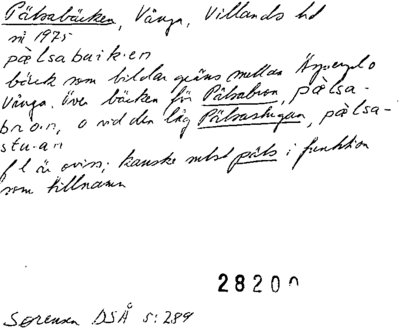 Pälsabäcken, Vånga, Villands hd
si 1975
pælsabaik·en
bäck som bildar gräns mellan Äsperyd o
Vånga. Över bäcken för Pälsabron, pælsa-
bro·n, o vid den låg Pälsastugan, pælsa-
stu·an
f l är oviss; kanske subst päls i funktion
som tillnamn
28200
Sørensen DSÅ s: 289